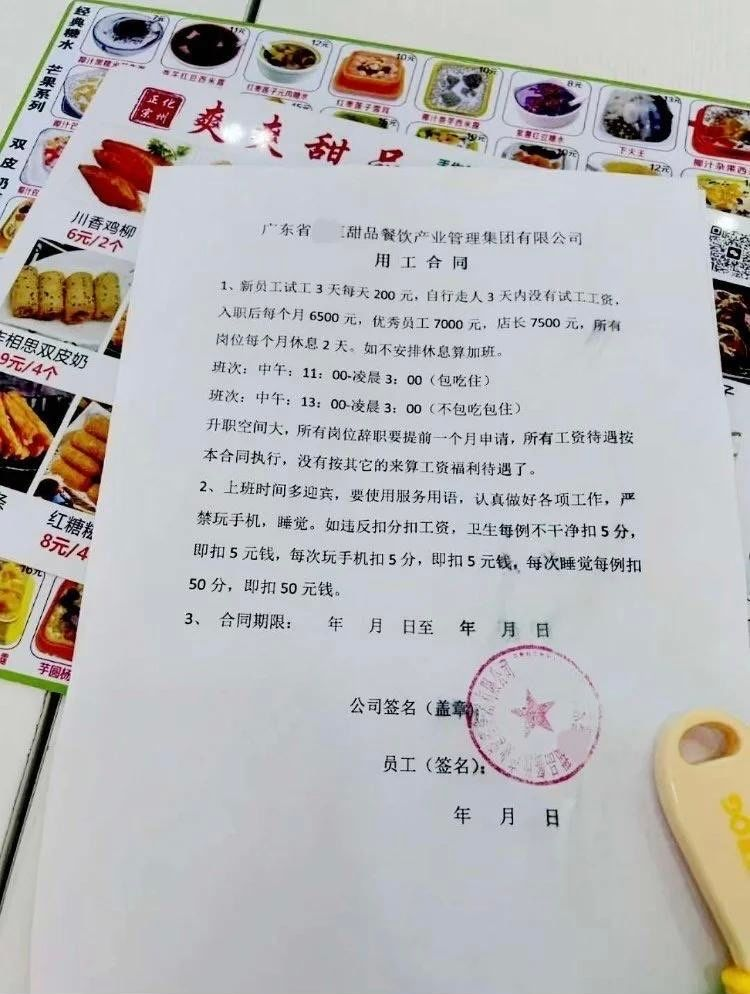 经典糖水
芒果系列
双皮奶
11元
12元
10元
10元
8元
13元
红枣莲子元肉糖水
下火王
12元
正化
崇州
爽爽甜品
川香鸡柳
6元/2个
相思双皮奶
9元/4个
红糖糍
8元/4
16元
芋圆杨
广东省 甜品餐饮产业管理集团有限公司
用工合同
1、新员工试工3天每天200元，自行走人3天内没有试工工资，
入职后每个月6500元，优秀员工7000元，店长7500元，所有
岗位每个月休息2天。如不安排休息算加班。
班次：中午：11：00-凌晨3：00（包吃住）
班次：中午：13：00-凌晨3：00（不包吃包住）
升职空间大，所有岗位辞职要提前一个月申请，所有工资待遇按
本合同执行，没有按其它的来算工资福利待遇了。
2、上班时间多迎宾，要使用服务用语，认真做好各项工作，严
禁玩手机，睡觉。如违反扣分扣工资，卫生每例不干净扣5分，
即扣5元钱，每次玩手机扣5分，即扣5元钱，每次睡觉每例扣
50分，即扣50元钱。
3、 合同期限： 年 月 日至 年 月 日
公司签名（盖章）：
员工（签名）：
年 月 日